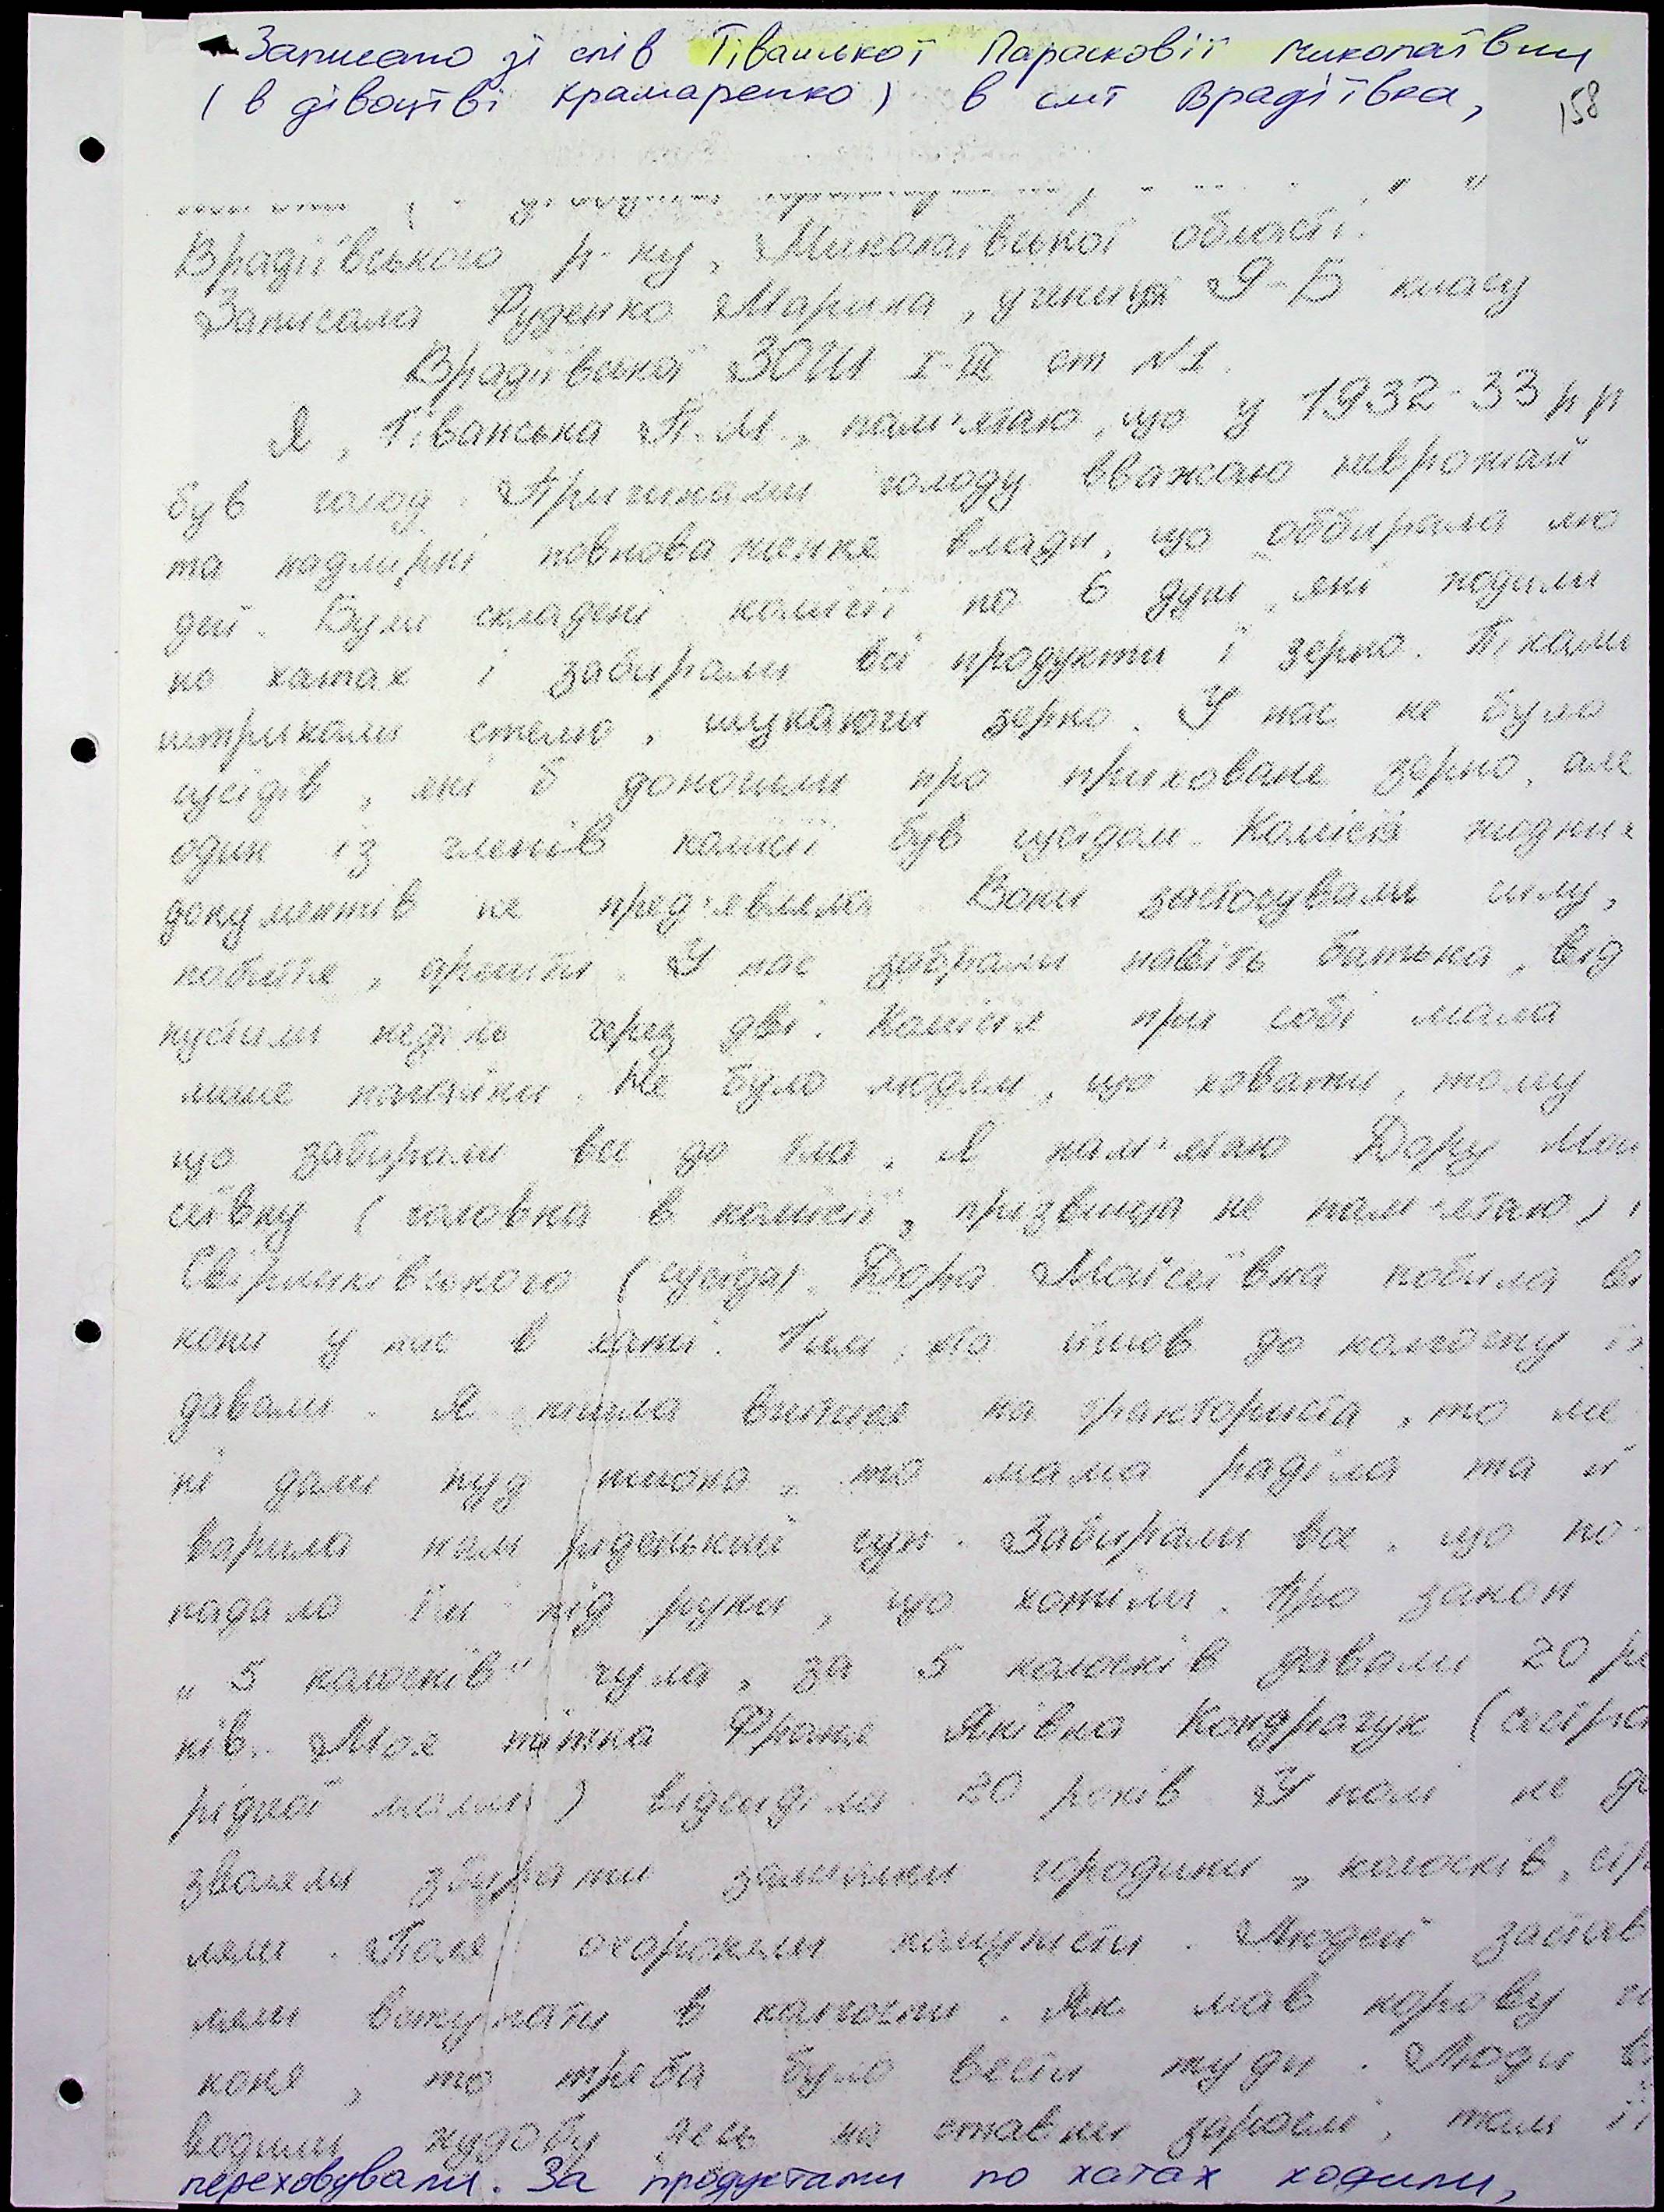 Записано зі слів Гіванської Парасковії Миколаївни
(в дівоцтві Крамаренко) в смт Врадіївка,
158
Врадіївського р-ну, Миколаївської області.
Записала Руденко Марина, учениця 9-Б класу
Врадіївської ЗОШ I-III ст №1.
Я, Гіванська П.М., пам'ятаю, що у 1932-33 р р
був голод. Причинами голоду вважаю неврожай
та надмірні повноваження влади, що оббирала лю
дей. Були складені комісії по 6 душ, які ходили
по хатах і забирали всі продукти і зерно. Піками
штрикали стелю, шукаючи зерно. У нас не було
сусідів, які б доносили про приховане зерно, але
один із членів комісії був сусідом. Комісія жодних
документів не пред'являла. Вони застосували силу,
побиття, арешти. У нас забрали навіть батька, від
пустили неділь через дві. Комісія при собі мала
лише нагайки. Не було людям, що ховати, тому
що забирали все до тла. Я пам'ятаю Дору Мой
сеївну (головна в комісії, прізвища не пам'ятаю) і
(сусіда). Дора Мойсеївна побила ві
кони у нас в хаті. Тим, хто йшов до колгоспу їх
давали. Я пішла вчитися на тракториста, то ме
ні дали пуд пшона, то мама раділа та й
варила нам ріденький суп. Забирали все, що по-
падало їм під руки, що хотіли. Про закон
"5 колосків" чула, за 5 колосків давали 20 ро
ків. Моя тітка Франя Яківна Кондрачук (сестра
рідної мами) відсиділа 20 років. У полі не до
зволяли збирати залишки городини, колосків,
ляли. Поля охороняли комуністи. Людей застав
ляли вступати в колгоспи. Як мав корову чи
коня, то треба було вести туди. Люди ві
водили худобу десь на ставки зарослі, там її
переховували. За продуктами по хатах ходили,